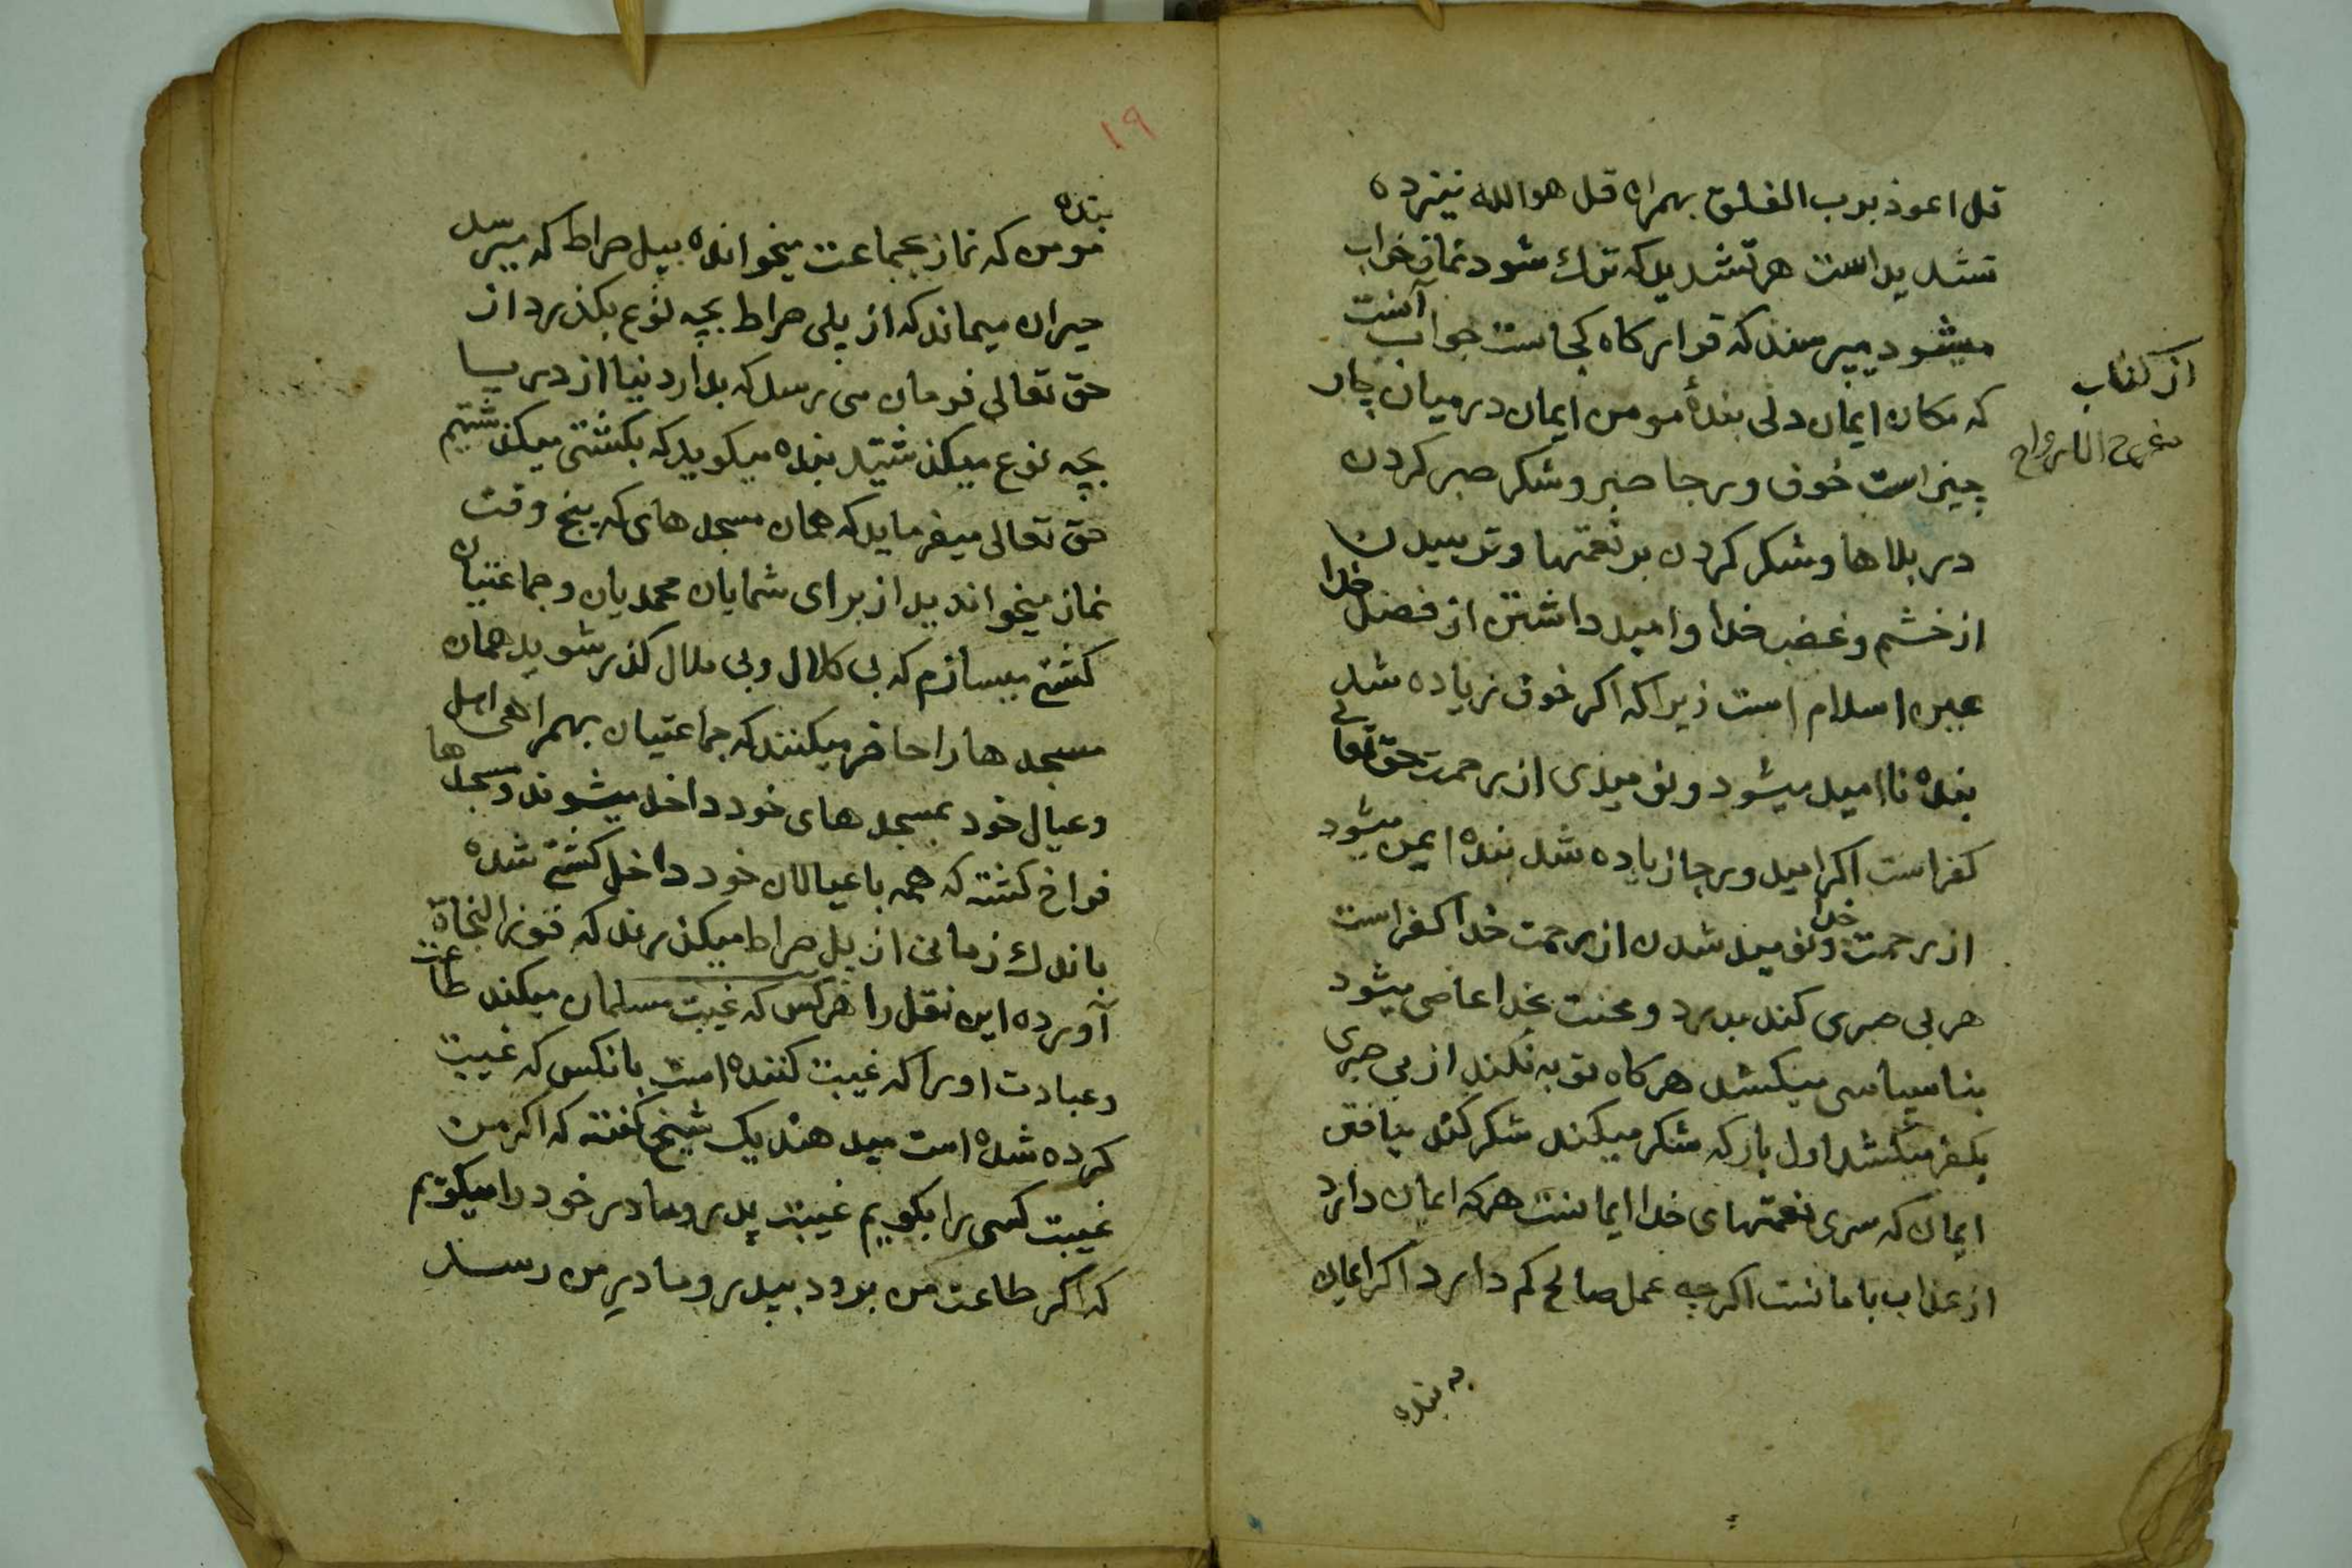 قل اعوذ برب الفلق بهمراه قل هو الله نیزده
تشدید است هر تشدید که ترك شود نماز خراب
میشود میپرسند که قرارکاه کجاست جواب آنست
که مکان ایمان دلی بندهٔ مومن ایمان درمیان چار
چیز است خوف ورجا صبر وشکر صبر کردن
در بلاها وشکر کردن بر نعمتها وترسیدن
از خشم وغضب خدا وامید داشتن از فضل خدا
عین اسلام است زیرا که اکر خوف زیاده شد
بنده ناامید میشود ونومیدی از رحمت حق تعالی
کفر است اکر امید ورجا زیاده شد بنده ایمن میشود
از رحمت خدا ونومید شدن از رحمت خدا کفر است
هر بی صبری کند بدرد ومحنت بخدا عاصی میشود
بناسپاسی میکشد هرکاه توبه نکند از بی صبری
بکفر میکشد اول باز که شکر میکند شکر کند بیافتن
ایمان که سری نعمتهای خدا ایمانست هرکه ایمان دارد
از عذاب با مانست اکرچه عمل صالح کم دارد اکر ایمان
به بنده
از کتاب
مفرح الارواح
۱۹
بنده
مومن که نماز بجماعت میخوانده بپل صراط که میرسد
حیران میماند که از پلی صراط بچه نوع بکذرد از
حق تعالی فرمان می رسد که بدار دنیا از دریا
بچه نوع میکذشتید بنده میکوید که بکشتی میکذشتیم
حق تعالی میفرماید که همان مسجدهای که پنج وقت
نماز میخواندید از برای شمایان محمدیان وجماعتیان
کشتی میسازم که بی کلال وبی ملال کذر شوید همان
مسجدها را حاضر میکنند که جماعتیان بهمراهی اهل
وعیال خود بمسجدهای خود داخل میشوند ومسجدها
فراخ کشته که همه با عیالان خود داخل کشتی شده
باندك زمانی از پل صراط میکذرند که فوز النجاة
آورده این نقل را هرکس که غیبت مسلمان میکند طاعت
وعبادت اورا که غیبت کننده است بانکس که غیبت
کرده شده است میدهند یک شیخ کفته که اکر من
غیبت کسی را بکویم غیبت پدر ومادر خود را میکویم
که اکر طاعت من برود بپدر ومادر من رسد